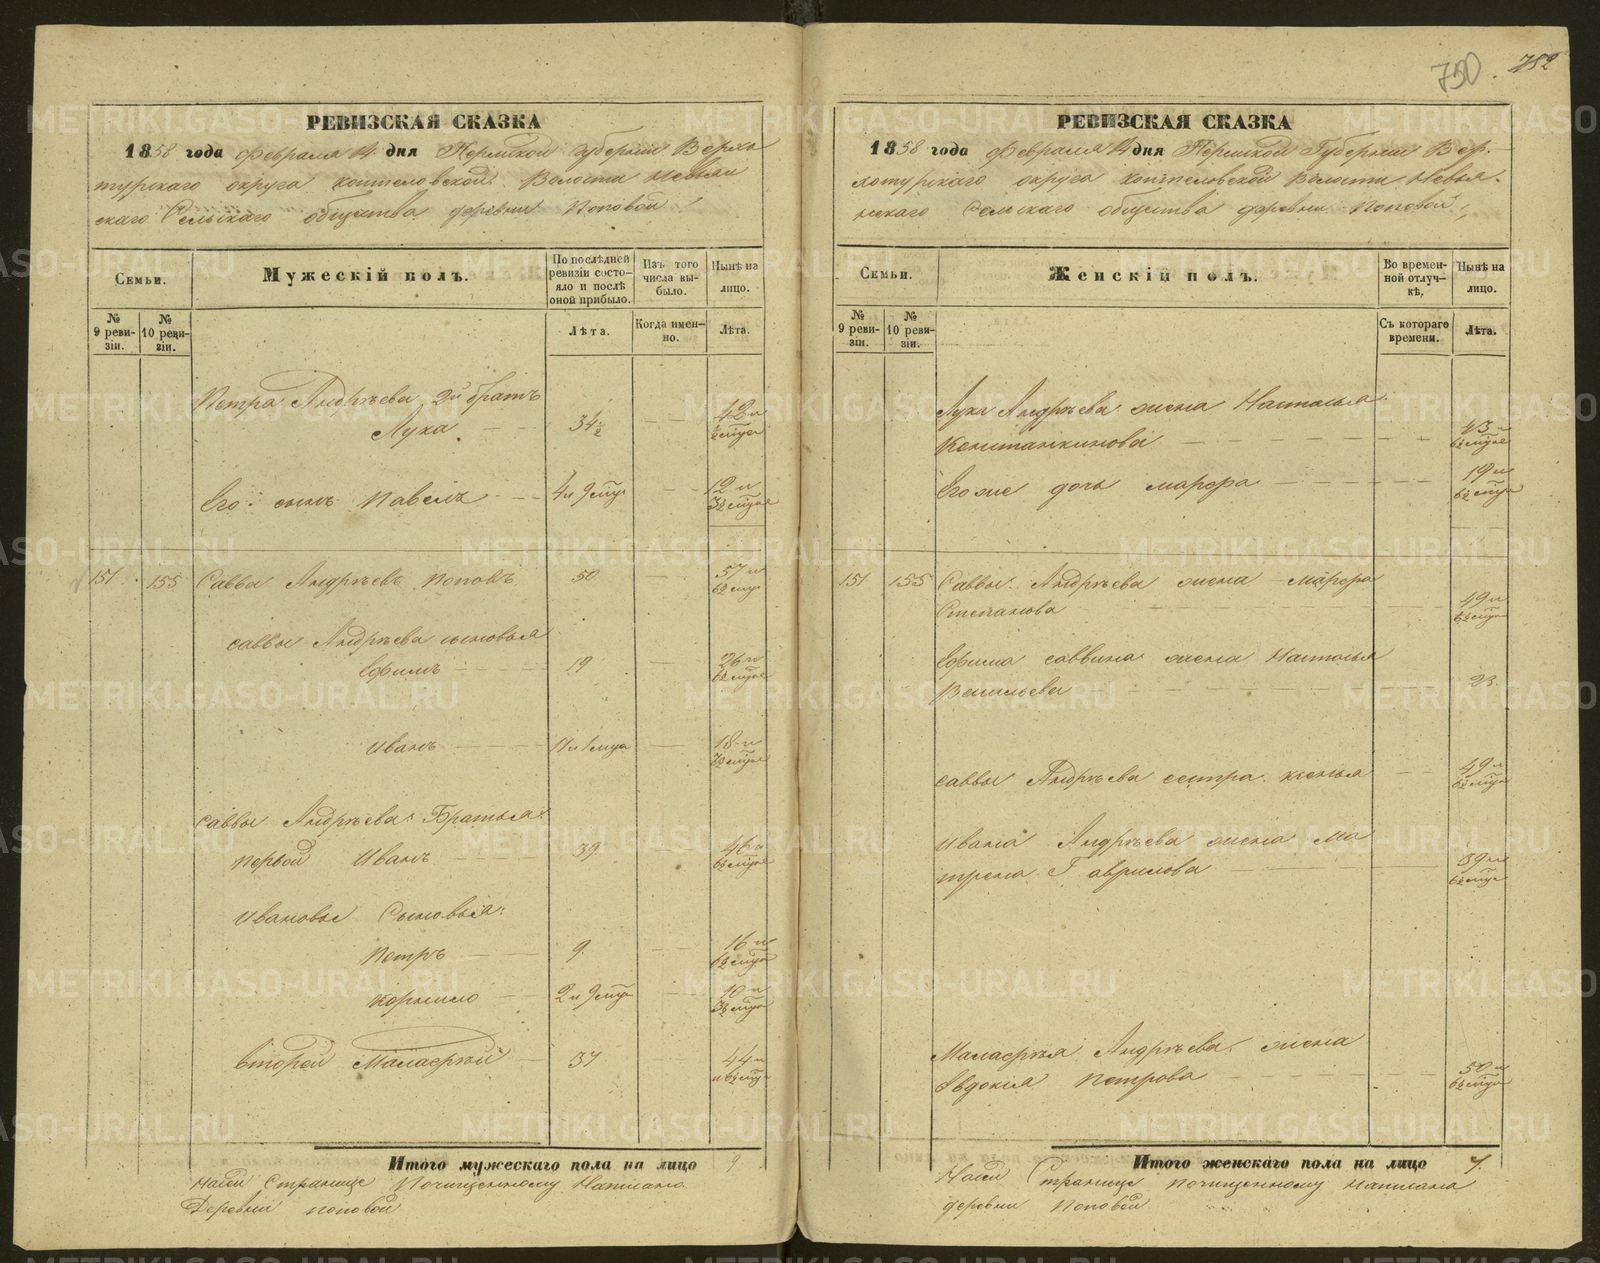 750
752
РЕВИЗСКАЯ СКАЗКА
1858 года февраля 14 дня Пермской губерніи Верхо
турскаго округа коптеловской Волости Невьян
скаго Сельскаго общества деревни Поповой
Семьи.
Мужескій полъ.
По послѣдней ревизіи состояло и послѣ оной прибыло.
Изъ того числа выбыло.
Нынѣ на лицо.
№ 9 ревизіи.
№ 10 ревизіи.
Лѣта.
Когда именно.
Лѣта.
Петра Андрѣева 2й братъ
Лука 34½ 42 и ½ мѣся
Его сынъ Павелъ 4 и 9 мѣся 12 и 3½ мѣся
151 155 Савва Андрѣевъ Поповъ 50 57 и 6½ мѣся
Саввы Андрѣева сыновья
Ефимъ 19 26 и 6½ мѣся
Иванъ 11 и 1 мѣся 18 и 7½ мѣся
Саввы Андрѣева Братья
первой Иванъ 39 46 и 6½ мѣся
Ивановы Сыновья:
Петръ 9 16 и 6½ мѣся
Корнило 2 и 9 мѣся 10 и 3½ мѣся
второй Малафѣй 37 44 и 6½ мѣся
Итого мужескаго пола на лицо 9
На сей Странице По чищенному Написано
Деревни Поповой
РЕВИЗСКАЯ СКАЗКА
1858 года февраля 14 дня Пермской Губерніи Вер-
хотурскаго округа коптеловской Волости Невья-
нскаго Сельскаго общества деревни Поповой
Семьи.
Женскій полъ.
Во временной отлучкѣ,
Нынѣ на лицо.
№ 9 ревизіи.
№ 10 ревизіи.
Съ котораго времени.
Лѣта.
Луки Андрѣева жена Наталья
Констанкинова 43 и 6½ мѣся
Его же дочь Марфа 19 и 6½ мѣся
151 155 Саввы Андрѣева жена Марфа
Степанова 49 и 6½ мѣся
Ефима Саввина жена Наталья
Васильева 23
Саввы Андрѣева сестра ксенья 49 и 6½ мѣся
Ивана Андрѣева жена Ма
трена Гаврилова 39 и 6½ мѣся
Малафѣя Андрѣева жена
Евдокія Петрова 50 и 6½ мѣся
Итого женскаго пола на лицо 7
На сей Странице По чищенному Написана
деревни Поповой
METRIKI.GASO-URAL.RU